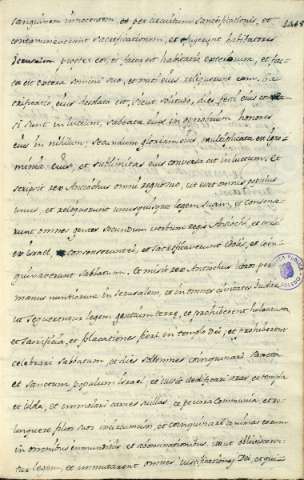 sanguinem innocentem et per circuitum sanctificationis, et
contaminaverunt sanctificationem, et fugerunt habitatores
Jerusalem propter eos, et facta est habitatio exterorum, et fac-
ta est extera semini suo, et nati eius reliquerunt eam, san-
ctificatio eius desolata est, sicut solitudo, dies festi eius
si sunt in luctum, sabbata eius in opprobrium honores
eius in nihilum secundum gloriam eius multiplicata est igno-
minia eius, et sublimitas eius conversa est in luctum, et
scripsit rex Antiochus omni regno suo, ut esset omnis populus
unus, et relinqueret unusquisque legem suam, et conse-
runt omnes gentes secundum verbum regis Antiochi, et
ex Israel, consenserunt ei, et sacrificaverunt idolis, et coin-
quinaverunt sabbatum, et misit rex Antiochus libros per
manus nuntiorum in Jerusalem, et in omnes civitates Judae
ut sequerentur legem gentium terrae, et prohiberent holocausta
et sacrificia, et placationes fieri in templo Dei, et prohiberent
celebrari sabbatum, et dies solemnes coinquinari sancta
et sanctum populum Israel et iussit aedificari aras, et templa
et idola, et immolari carnes suillas, et pecora communia, et re-
linquere filios suos incircumcisos, et coinquinari animas eorum
in omnibus immunditiis et abominationibus ita ut obliviscere-
tur legem, et immutarent omnes iustificationes Dei, et qui